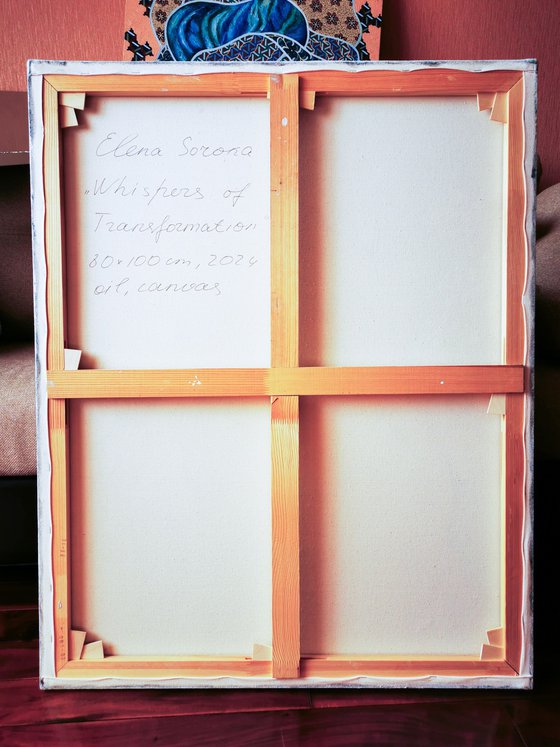 Elena Sorona
„Whispers of
Transformation
80×100 cm, 2024
oil, canvas